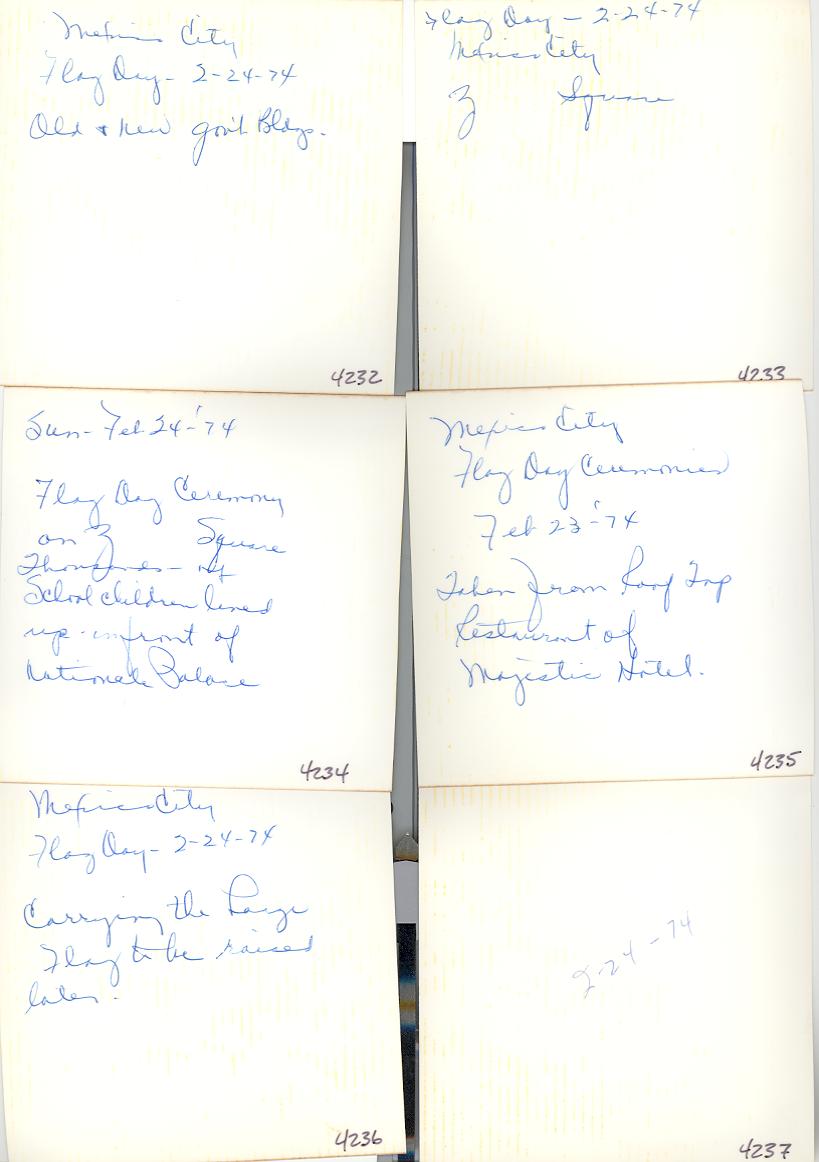 Mexico City
Flag Day - 2-24-74
Old & New Gov't Bldgs.
4232
Flag Day - 2-24-74
Mexico City
Z Square
4233
Sun - Feb 24 - '74
Flag Day Ceremony
on Z Square
Thousands - of
School children lined
up - in front of
Nationale Palace
4234
Mexico City
Flag Day Ceremonies
Feb 23 - '74
Taken from Roof Top
Restaurant of
Majestic Hotel.
4235
Mexico City
Flag Day - 2-24-74
Carrying the Large
Flag to be raised
later.
4236
2-24-74
4237